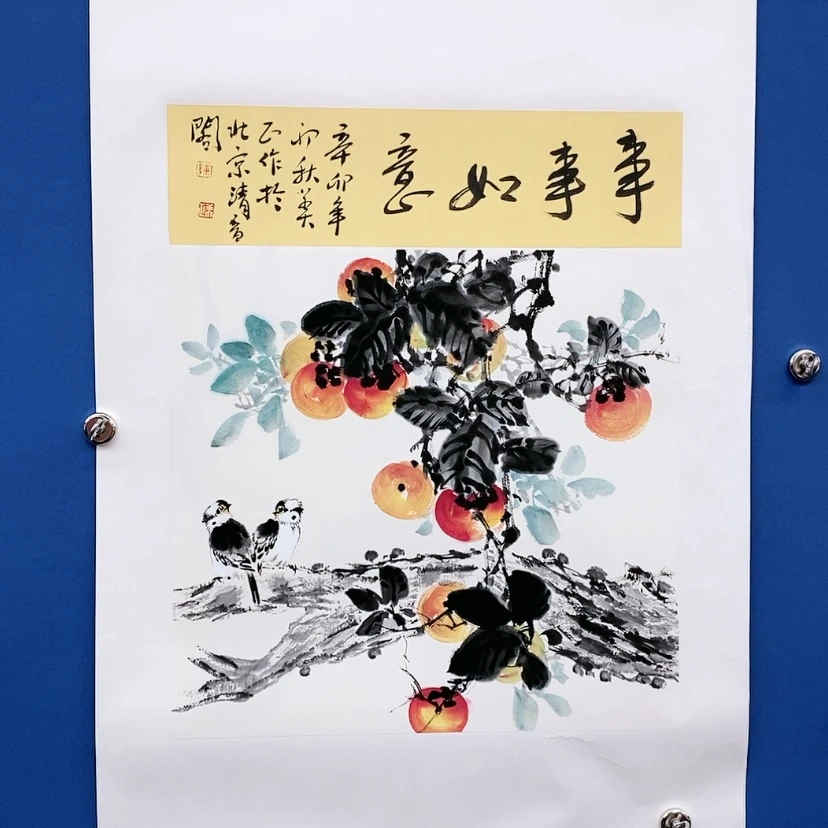 事事如意
辛卯年
初秋
正作於
北京清音
閣